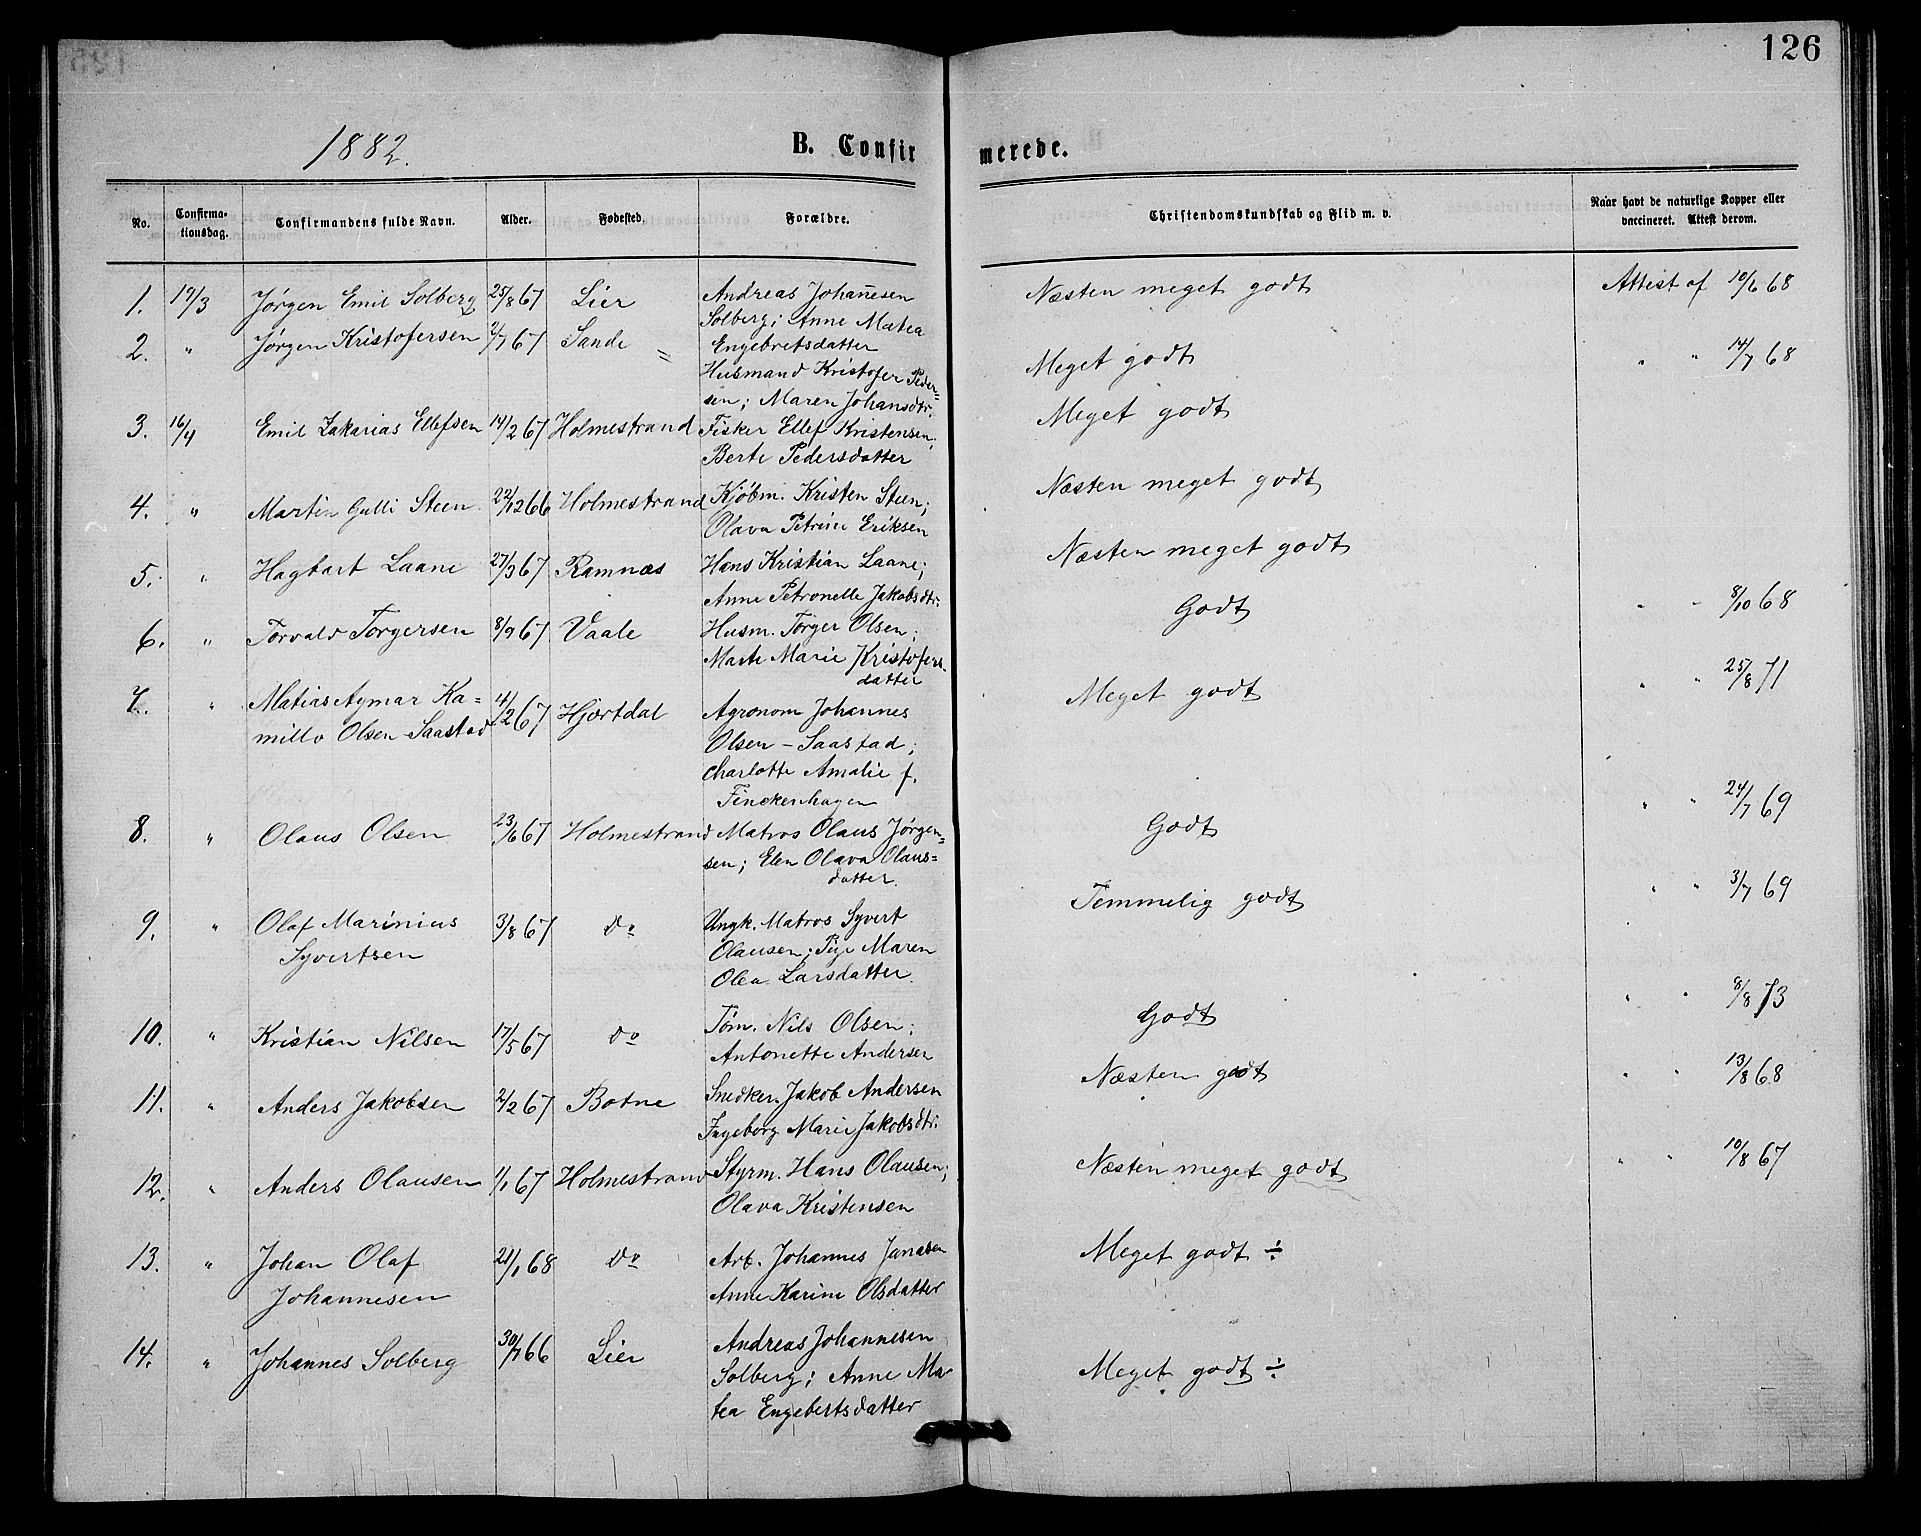 126
1882.
B. Confirmerede.
No. Confirmationsdag. Confirmandens fulde Navn. Alder. Fødested. Forældre. Christendomskundskab og Flid m. v. Naar havt de naturlige Kopper eller vaccineret. Attest derom.
1. 19/3 Jørgen Emil Solberg 25/8 67 Lier Andreas Johannesen Næsten meget godt Attest af 10/6 68
Solberg; Anne Matea
Engebretsdatter
2. " Jørgen Kristofersen 2/7 67 Sande Husmand Kristofer Peder= Meget godt " " 14/7 68
sen; Maren Johansdtr.
3. 16/4 Emil Zakarias Ellefsen 14/2 67 Holmestrand Fisker Ellef Kristensen; Meget godt
Berte Pedersdatter
4. " Martin Gulli Steen 22/12 66 Holmestrand Kjöbm. Kristen Steen; Næsten meget godt
Olava Petrine Eriksen
5. " Hagbart Laane 27/3 67 Ramnæs Hans Kristian Laane; Næsten meget godt
Anne Petronelle Jakobsdtr.
6. " Torvald Torgersen 8/9 67 Vaale Husm. Torger Olsen; Godt " " 8/10 68
Marte Marie Kristofers-
datter
7. " Matias Aymar Ka= 4/2 67 Hjertdal Agronom Johannes Meget godt " " 25/8 71
millo Olsen-Saastad Olsen-Saastad;
Charlotte Amalie f.
Finckenhagen
8. " Olaus Olsen 23/6 67 Holmestrand Matros Olaus Jørgen= Godt " " 24/7 69
sen; Elen Olava Olaus=
datter.
9. " Olaf Marinius 3/8 67 do Ungk. Matros Syvert Temmelig godt " " 3/7 69
Syvertsen Olausen; Pige Maren
Olea Larsdatter
10. " Kristian Nilsen 17/5 67 do Töm. Nils Olsen; Godt " " 8/8 73
Antonette Andersen
11. " Anders Jakobsen 2/2 67 Botne Snedker. Jakob Andersen Næsten godt " " 13/8 68
Ingeborg Marie Jakobsdtr.
12. " Anders Olausen 1/1 67 Holmestrand Styrm. Hans Olausen; Næsten meget godt " " 10/8 67
Olava Kristensen
13. " Johan Olaf 21/1 68 do Arb. Johannes Jonasen Meget godt ÷
Johannesen Anne Karine Olsdatter
14. " Johannes Solberg 30/7 66 Lier Andreas Johannesen Meget godt ÷
Solberg; Anne Ma-
tea Engebertsdatter